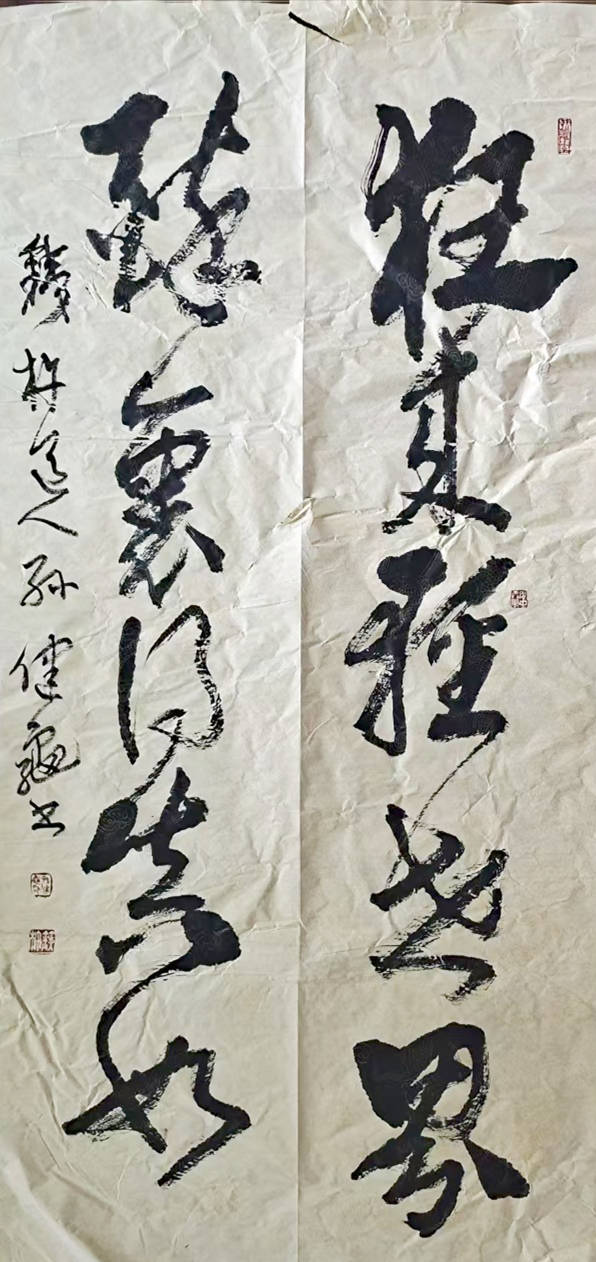 狂来轻世界
醉里得真如
道人孙健龟书